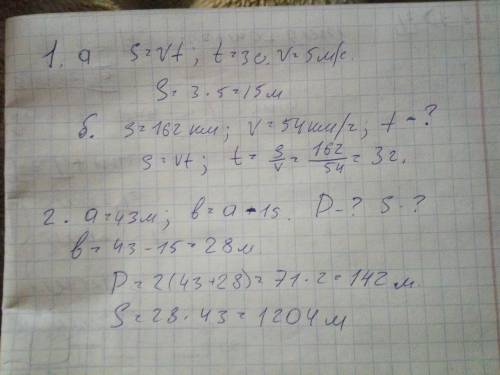 1. а S=Vt; t=3с. V=5м/с.
S=3·5=15м
б. S=162км; V=54км/г; t-?
S=Vt; t=S/V=162/54=3г.
2. a=43м; в=a-15. P-? S-?
в=43-15=28м
P=2(43+28)=71·2=142м
S=28·43=1204м